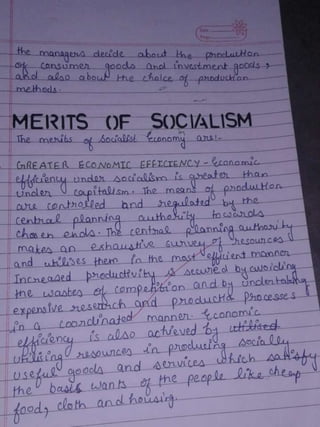 the managers decide about the production
of consumer goods and investment goods,
and also about the choice of production
methods.
MERITS OF SOCIALISM
The merits of socialist Economy are:-
GREATER ECONOMIC EFFICIENCY - Economic
efficiency under socialism is greater than
under capitalism. The means of production
are controlled and regulated by the
central planning authority towards
chosen ends. The central planning authority
makes an exhaustive survey of resources
and utilises them in the most efficient manner
Increased productivity is secured by avoiding
the wastes of competition and by undertaking
expensive research and production processes
in a coordinated manner. Economic
efficiency is also achieved by utilised
utilising resources in producing socially
useful goods and services which satisfy
the basic wants of the people like cheap
food, cloth and housing.